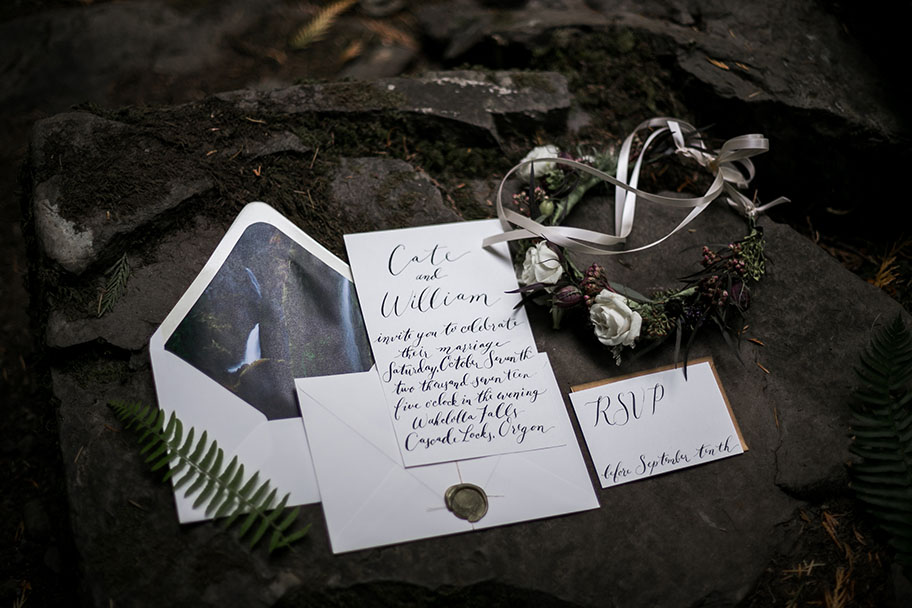 Cate
and
William
invite you to celebrate
their marriage
Saturday, October Seventh
two thousand seventeen
five o'clock in the evening
Wahclella Falls
Cascade Locks, Oregon
RSVP
before September tenth